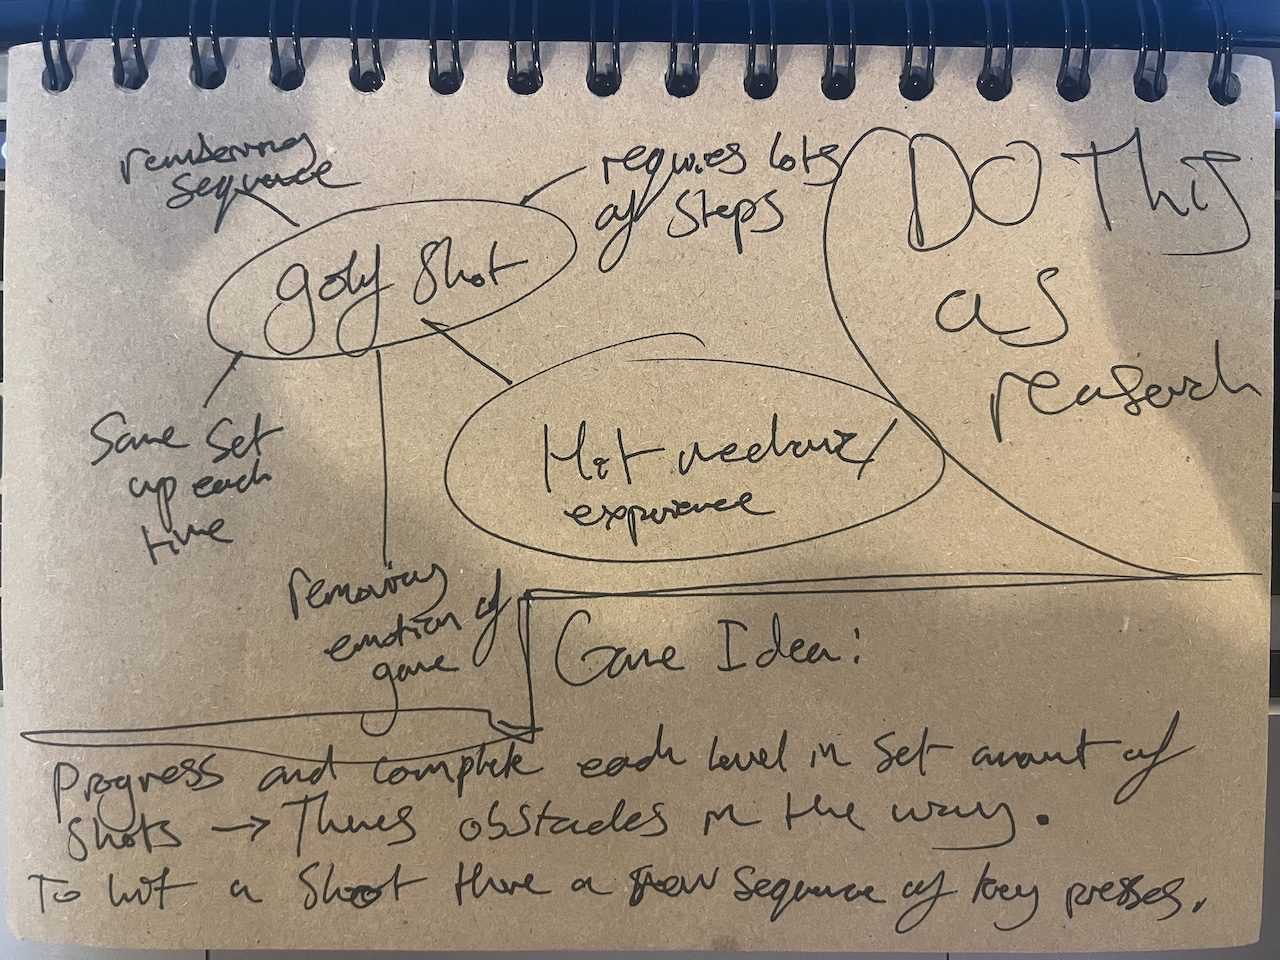 remembering
sequence
requires lots
of steps
DO This
as
research
golf shot
Hit mechanic/
experience
Same set
up each
time
removing
emotion of
game
Game Idea:
Progress and complete each level in set amount of
shots → Theres obstacles in the way.
To hit a shot there a few sequence of key presses.